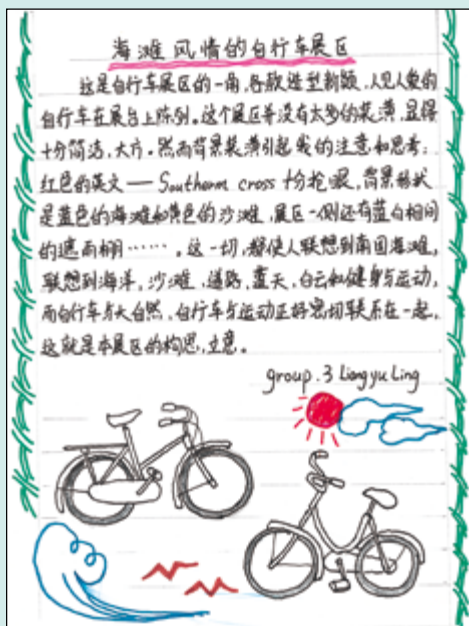 海滩风情的自行车展区
这是自行车展区的一角,各款造型新颖,人见人爱的
自行车在展台上陈列。这个展区并没有太多的装潢,显得
十分简洁,大方。然而背景装潢引起我的注意和思考:
红色的英文——Southerm cross十分抢眼,背景形状
是蓝色的海滩和黄色的沙滩,展区一侧还有蓝白相间
的遮雨棚……。这一切,都使人联想到南国海滩,
联想到海洋,沙滩,道路,蓝天,白云和健身与运动,
而自行车与大自然,自行车与运动正好密切联系在一起,
这就是本展区的构思,立意。
group.3 Liangyu Ling